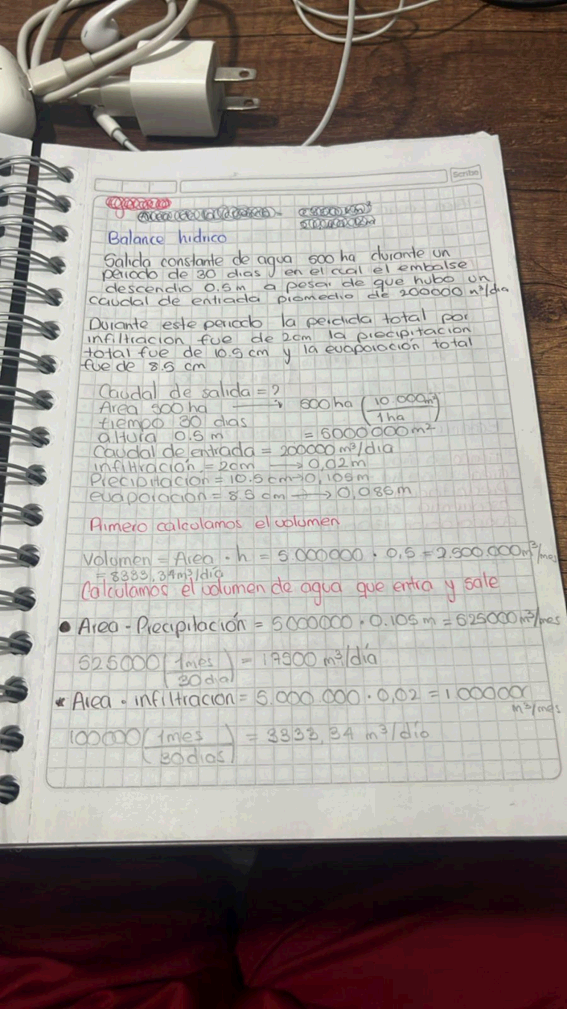 Scribe
Balance hidrico
Salida constante de agua 500 ha durante un
periodo de 30 dias y en el cual el embalse
descendio 0.5m a pesar de que hubo un
caudal de entrada promedio de 200000 m³/dia
Durante este periodo la perdida total por
infiltracion fue de 2cm la precipitacion
total fue de 10.5 cm y la evaporación total
fue de 8.5 cm
Caudal de salida = ?
Area 500 ha → 500 ha (10.000m²/1ha)
tiempo 30 dias
altura 0.5 m = 5000000m²
Caudal de entrada = 200000 m³/dia
infiltracion = 2cm → 0,02m
Precipitacion = 10.5cm→0,105m
evaporacion = 8.5 cm → 0,085m
Primero calculamos el volumen
Volumen = Area · h = 5.000000 · 0,5 = 2.500.000m³/mes
= 8333,34m³/día
Calculamos el volumen de agua que entra y sale
• Area · Precipilación = 5000000 · 0.105 m = 525000m³/mes
525000 (1mes/30dia) = 17500 m³/día
* Area · infiltracion = 5.000.000 · 0,02 = 100000
m³/mes
100000 (1mes/30dias) = 3333,34 m³/dío